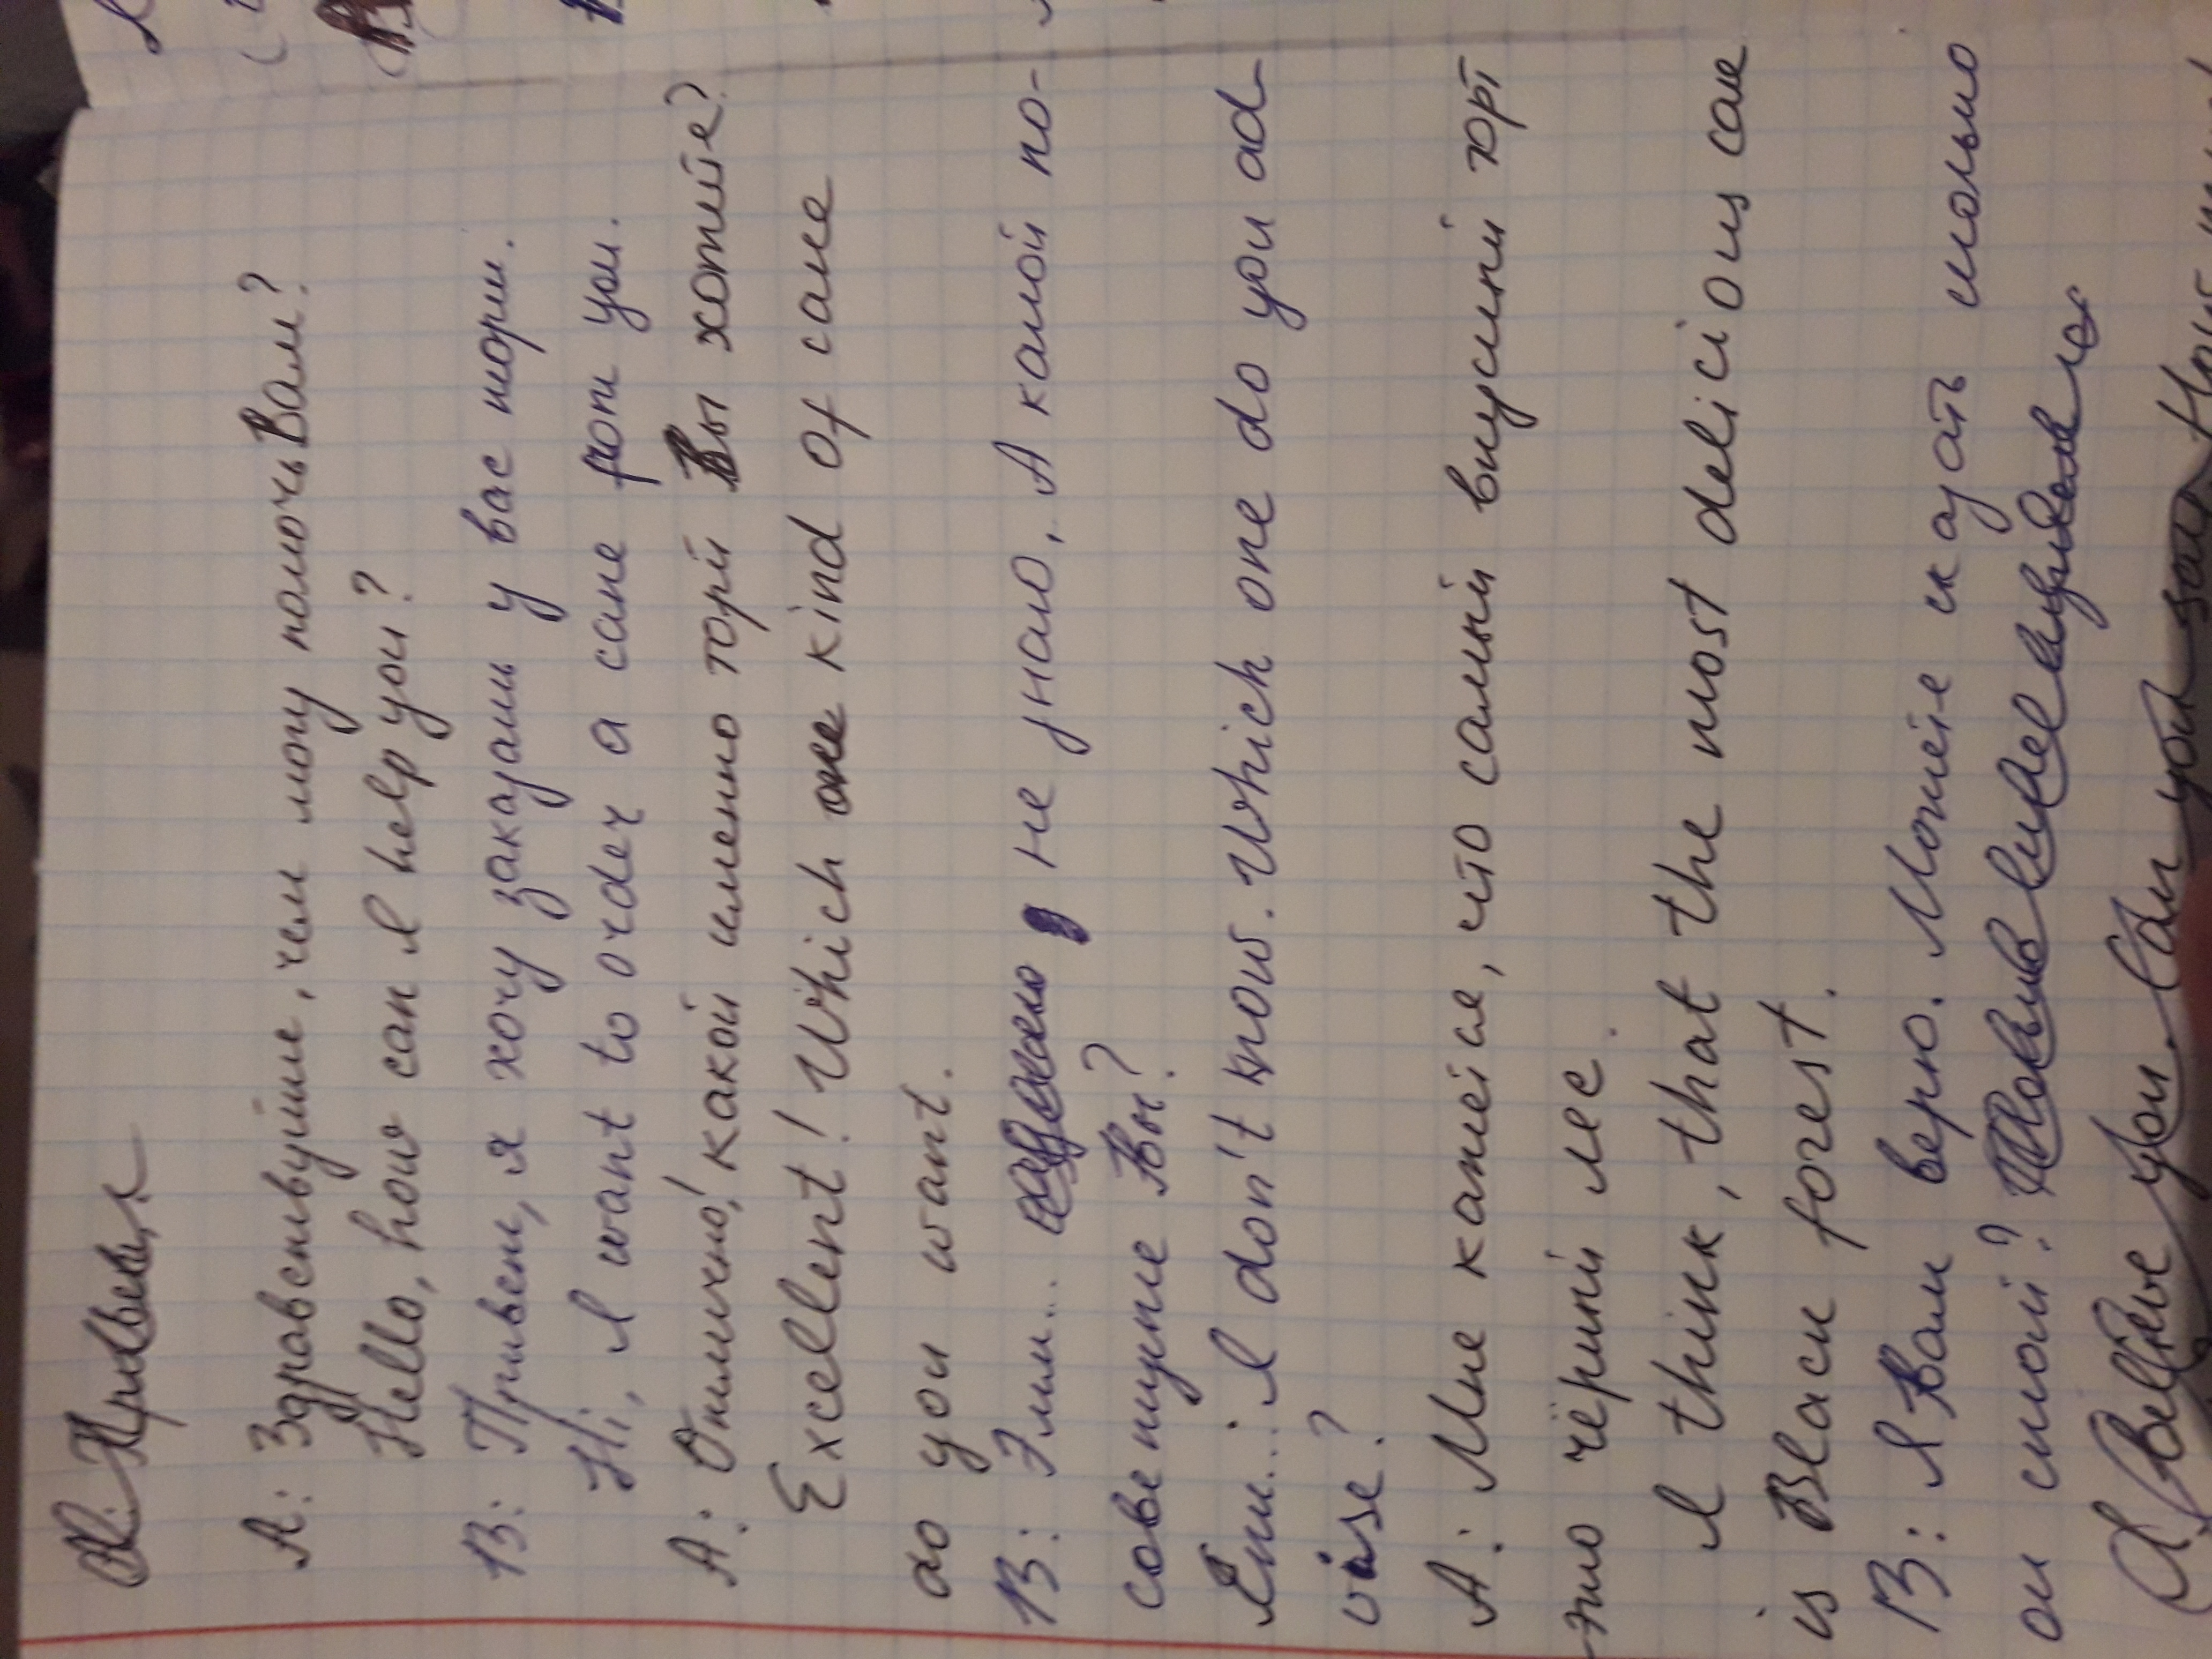 А: Здравствуйте, чем могу помочь Вам?
Hello, how can I help you?
В: Привет, я хочу заказать у вас торт.
Hi, I want to order a cake from you.
А: Отлично! какой именно торт Вы хотите?
Excellent! Which one kind of cake
do you want.
В: Эмм... не знаю. А какой по-
советуете Вы?
Emm... I don't know. Which one do you ad
vise?
А: Мне кажется, что самый вкусный торт
это чёрный лес.
I think, that the most delicious cake
is Black forest.
В: Я Вам верю. Можете сказать сколько
он стоит?
I Believe you. Can you say